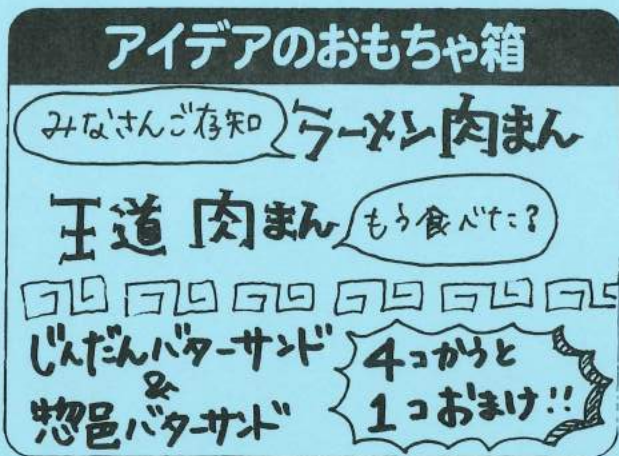 アイデアのおもちゃ箱
みなさんご存知
ラーメン肉まん
王道 肉まん
もう食べた？
じんだんバターサンド
&
惣邑バターサンド
4コかうと
1コおまけ!!